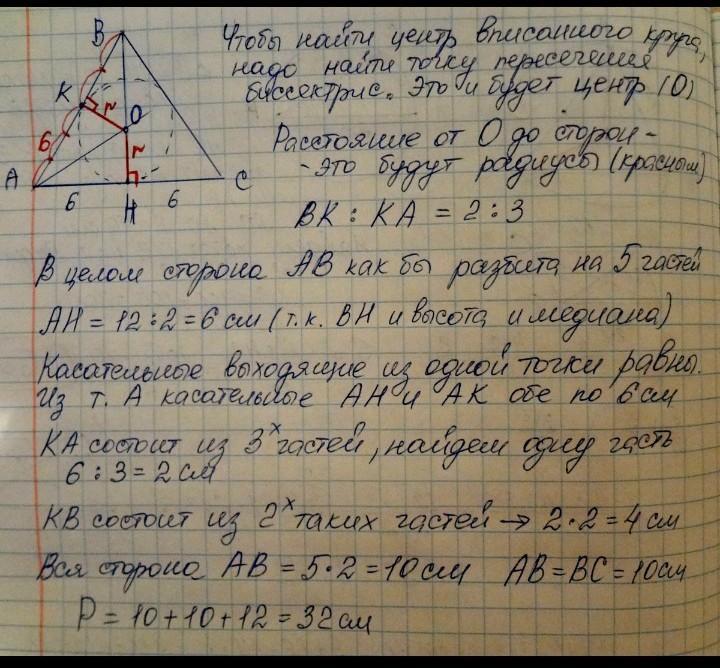 Чтобы найти центр вписанного круга,
надо найти точку пересечения
биссектрис. Это и будет центр (О)
Расстояние от О до сторон -
- это будут радиусы (красным)
BK : KA = 2 : 3
B
K
r
O
6
r
A
C
6
H
6
В целом сторона AB как бы разбита на 5 частей
AH = 12 : 2 = 6 см (т.к. BH и высота и медиана)
Касательные выходящие из одной точки равны.
Из т. А касательные AH и AK обе по 6 см
KA состоит из 3ˣ частей, найдем одну часть
6 : 3 = 2 см
KB состоит из 2ˣ таких частей → 2 · 2 = 4 см
Вся сторона AB = 5 · 2 = 10 см AB = BC = 10 см
P = 10 + 10 + 12 = 32 см